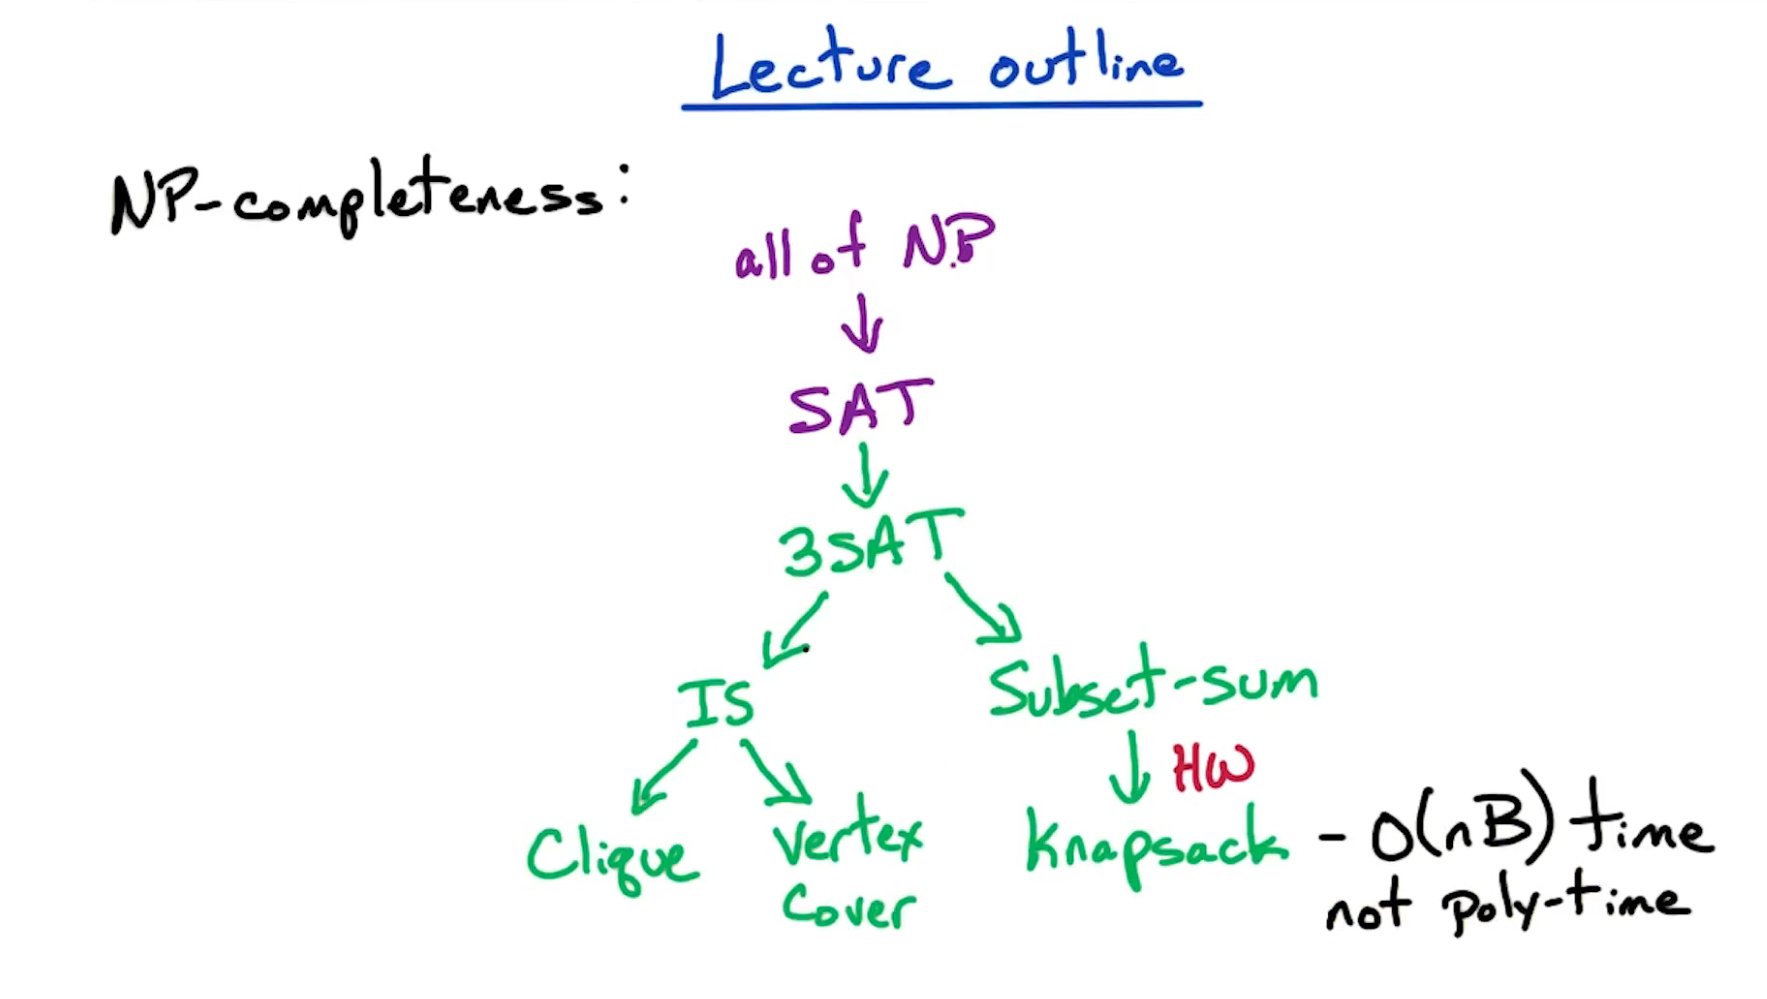 Lecture outline
NP-completeness:
all of NP
SAT
3SAT
IS
Subset-sum
HW
Clique
Vertex
Cover
Knapsack - O(nB) time
not poly-time